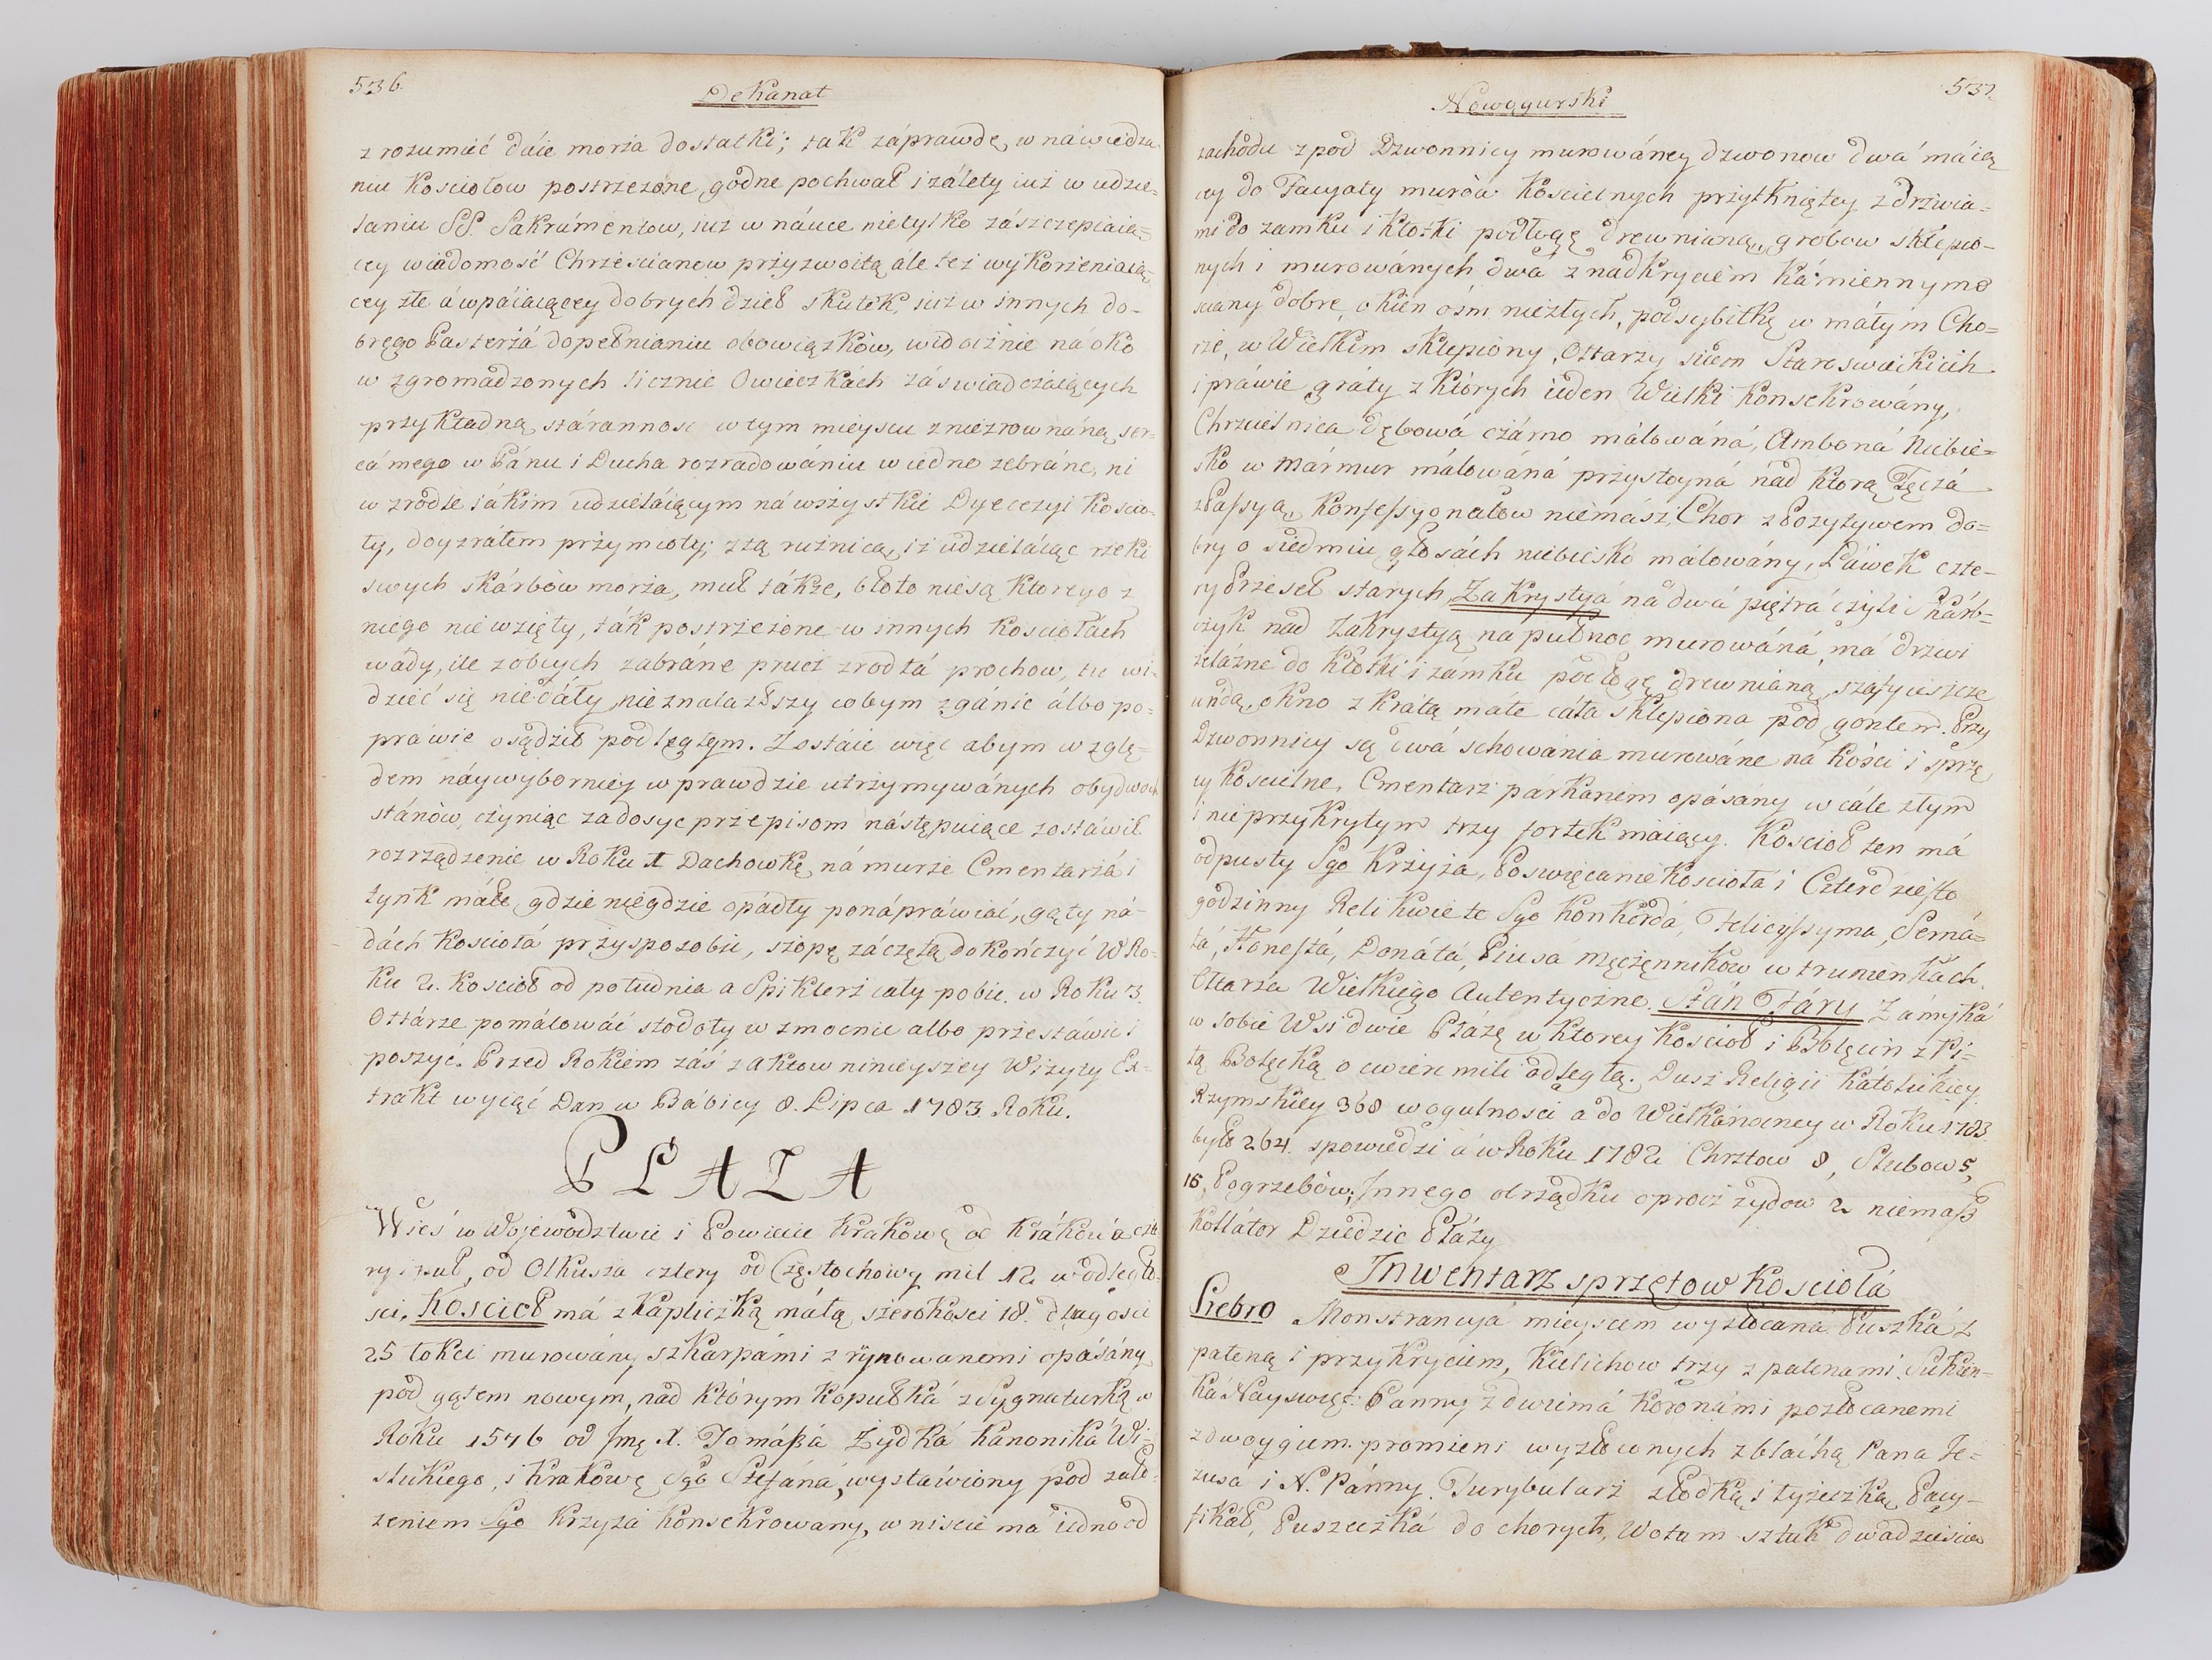 536.
Dekanat
zrozumieć dáie morza dostatki; tak záprawdę, w náwiedza
niu Kosciołow postrzeżone, godne pochwał i zálety iuż w udzie=
laniu SS. Sakrámentow, iuż w náuce nietylko zászczepiaią=
cey wiadomość Chrześcianow przyzwoitą ále też wykorzeniaią=
cey złe á wpáiaiącey dobrych dzieł skutek, iuż w innych do-
brego Pasterzá dopełnianiu obowiązków, widocznie ná oko
w zgromádzonych licznie Owieczkách záswiadczáiących
przykładną stáranność w tym mieyscu z niezrownáną ser=
cá mego w Pánu i Ducha rozradowániu w iedno zebráne, ni
w zrodle iákim udzieláiącym ná wszystkie Dyecezyi Koscio-
ły, doyzráłem przymioty; z tą rużnicą, iż udzieláiąc rzeki
swych skárbów morza, muł tákże, błoto niesą ktorego z
niego niewzięły, ták postrzeżone w innych Kosciołách
wády, ile z obcych zabráne przez zrodłá prochow, tu wi-
dzieć się niedáły, nieznalazłszy cobym zgánić álbo po=
práwie osądził podległym. Zostáie więc abym wzglę=
dem náywyborniey w prawdzie utrzymywánych obydwoch
stánów, czyniąc zadosyc przepisom nástępuiące zostáwił
rozrządzenie w Roku 1 Dachowkę ná murze Cmentarzá i
tynk máłe, gdzie niegdzie opádły ponápráwiać, gąty ná-
dách Kosciołá przysposobić, szopę záczętą dokończyć W Ro=
ku 2. Kosciół od południa a Spiklerz cały pobić. w Roku 3.
Ołtárze pomálowáć stodoły wzmocnić albo przestáwić i
poszyć. Przed Rokiem záś z Aktow ninieyszey Wizyty Ex=
trakt wyiąć Dan w Bábicy 8. Lipca 1783 Roku.
PŁAZA
Wieś w Wojewodztwie i Powiecie Krakowę od Krákowá czte
ry i puł, od Olkusza cztery od Częstochowy mil 12 w odległo-
sci. Kosciół má z Kapliczką máłą szerokości 18. długości
25 łokci murowány szkarpámi z rynowanemi opásány
pod gątem nowym, nád którym Kopułká z Sygnaturką w
Roku 1546 od Jmę X. Tomászá Żydká Kánoniká Wi=
ślickiego, i Krakowę Sgo Stefáná, wystáwiony pod záło=
żeniem Sgo Krzyża Konsekrowany, wniście má iedno od
537.
Nowogurski
zachodu z pod Dzwonnicy murowáney dzwonow dwá máią
cy do Facyaty murów Koscielnych przytkniętey z drzwia=
mi do zamku i kłotki podłogę drewnianą, grobow sklepio-
nych i murowánych dwá z nádkryciem Kámiennym
sciany dobre, okien ośm niezłych, podsybitkę w máłym Cho=
rze, w Wielkim sklepiony, Ołtarzy siedm Staroswieckich
i práwie gráty z których ieden Wielki Konsekrowány,
Chrzcielnica dębowá czárno málowáná, Amboná Niebie=
sko w mármur málowáná przystoyná nád ktorą Tęczá
z Passyą, Konfessyonałow niemász, Chor z Pozytywem do=
bry o siedmiu głosách niebiesko málowány, Láwek czte-
ry Krzeseł starych, Zakrystyá ná dwá piętrá czyli Skárb=
czyk nád Zakrystyą na pułnoc murowáná, má drzwi
żelázne do Kłotki i zámku podłogę drewnianą, szafy ieszcze
uydą, okno z krátą máłe cáła sklepiona pod gontem. Przy
Dzwonnicy są dwá schowánia murowáne ná kości i sprzę
ty Koscielne. Cmentarz párkanem opásány w cále złym
i nieprzykrytym trzy fortek maiący. Kosciół ten má
odpusty Sgo Krzyża, Poswięcanie Kosciołá i Czterdziesto
godzinny Relikwie te Sgo Konkordá, Felicyssyma, Serná=
tá, Honestá, Donátá, Piusa męczęnnikow w trumienkách.
Ołtarza Wielkiego Autentyczne. Stán Fáry Zámyká
w sobie Wsi dwie Płázę w ktorey Kosciół i Bolęcin z Pi=
łą Bolęcką o cwierc mili odległą. Dusz Religii Kátolickiey
Rzymskiey 368 w ogulności a do Wielkánocney w Roku 1783
było 264. spowiedzi á w Roku 1782 Chrztow 8, Slubow 5,
16, Pogrzebów; Innego obrządku oprocz żydow 2 niemasz
Kollátor Dziedzic Płázy
Inwentarz sprzętow Kosciołá
Srebro Monstrancyá mieyscem wyzłocana Puszká z
pateną i przykryciem, Kielichow trzy z patenami. Sukien=
ká Nayswięt: Panny z dwiemá Koronámi pozłocanemi
z dwoygiem promieni wyzłoconych z blachą Pana Je=
zusa i N. Pánny. Turybularz z łodką i łyżeczką Pacy-
fikáł, Puszeczká do chorych, Wotum sztuk dwadziescia